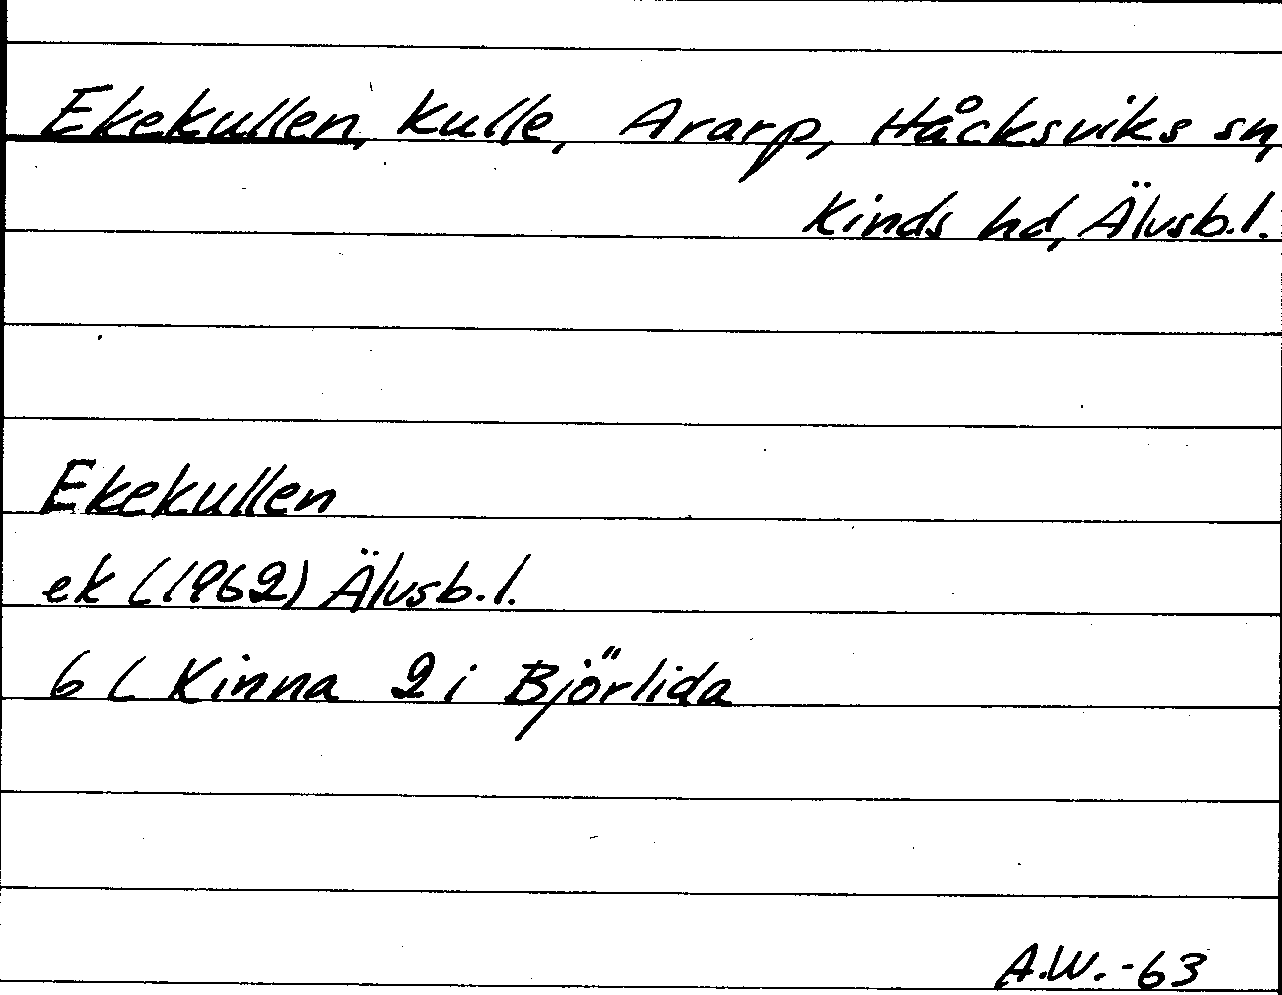 Ekekullen, Kulle, Ararp, Håcksviks sn,
Kinds hd, Älvsb.l.
Ekekullen
ek (1962) Älvsb.l.
6 C Kinna 2i Björlida
A.W. -63